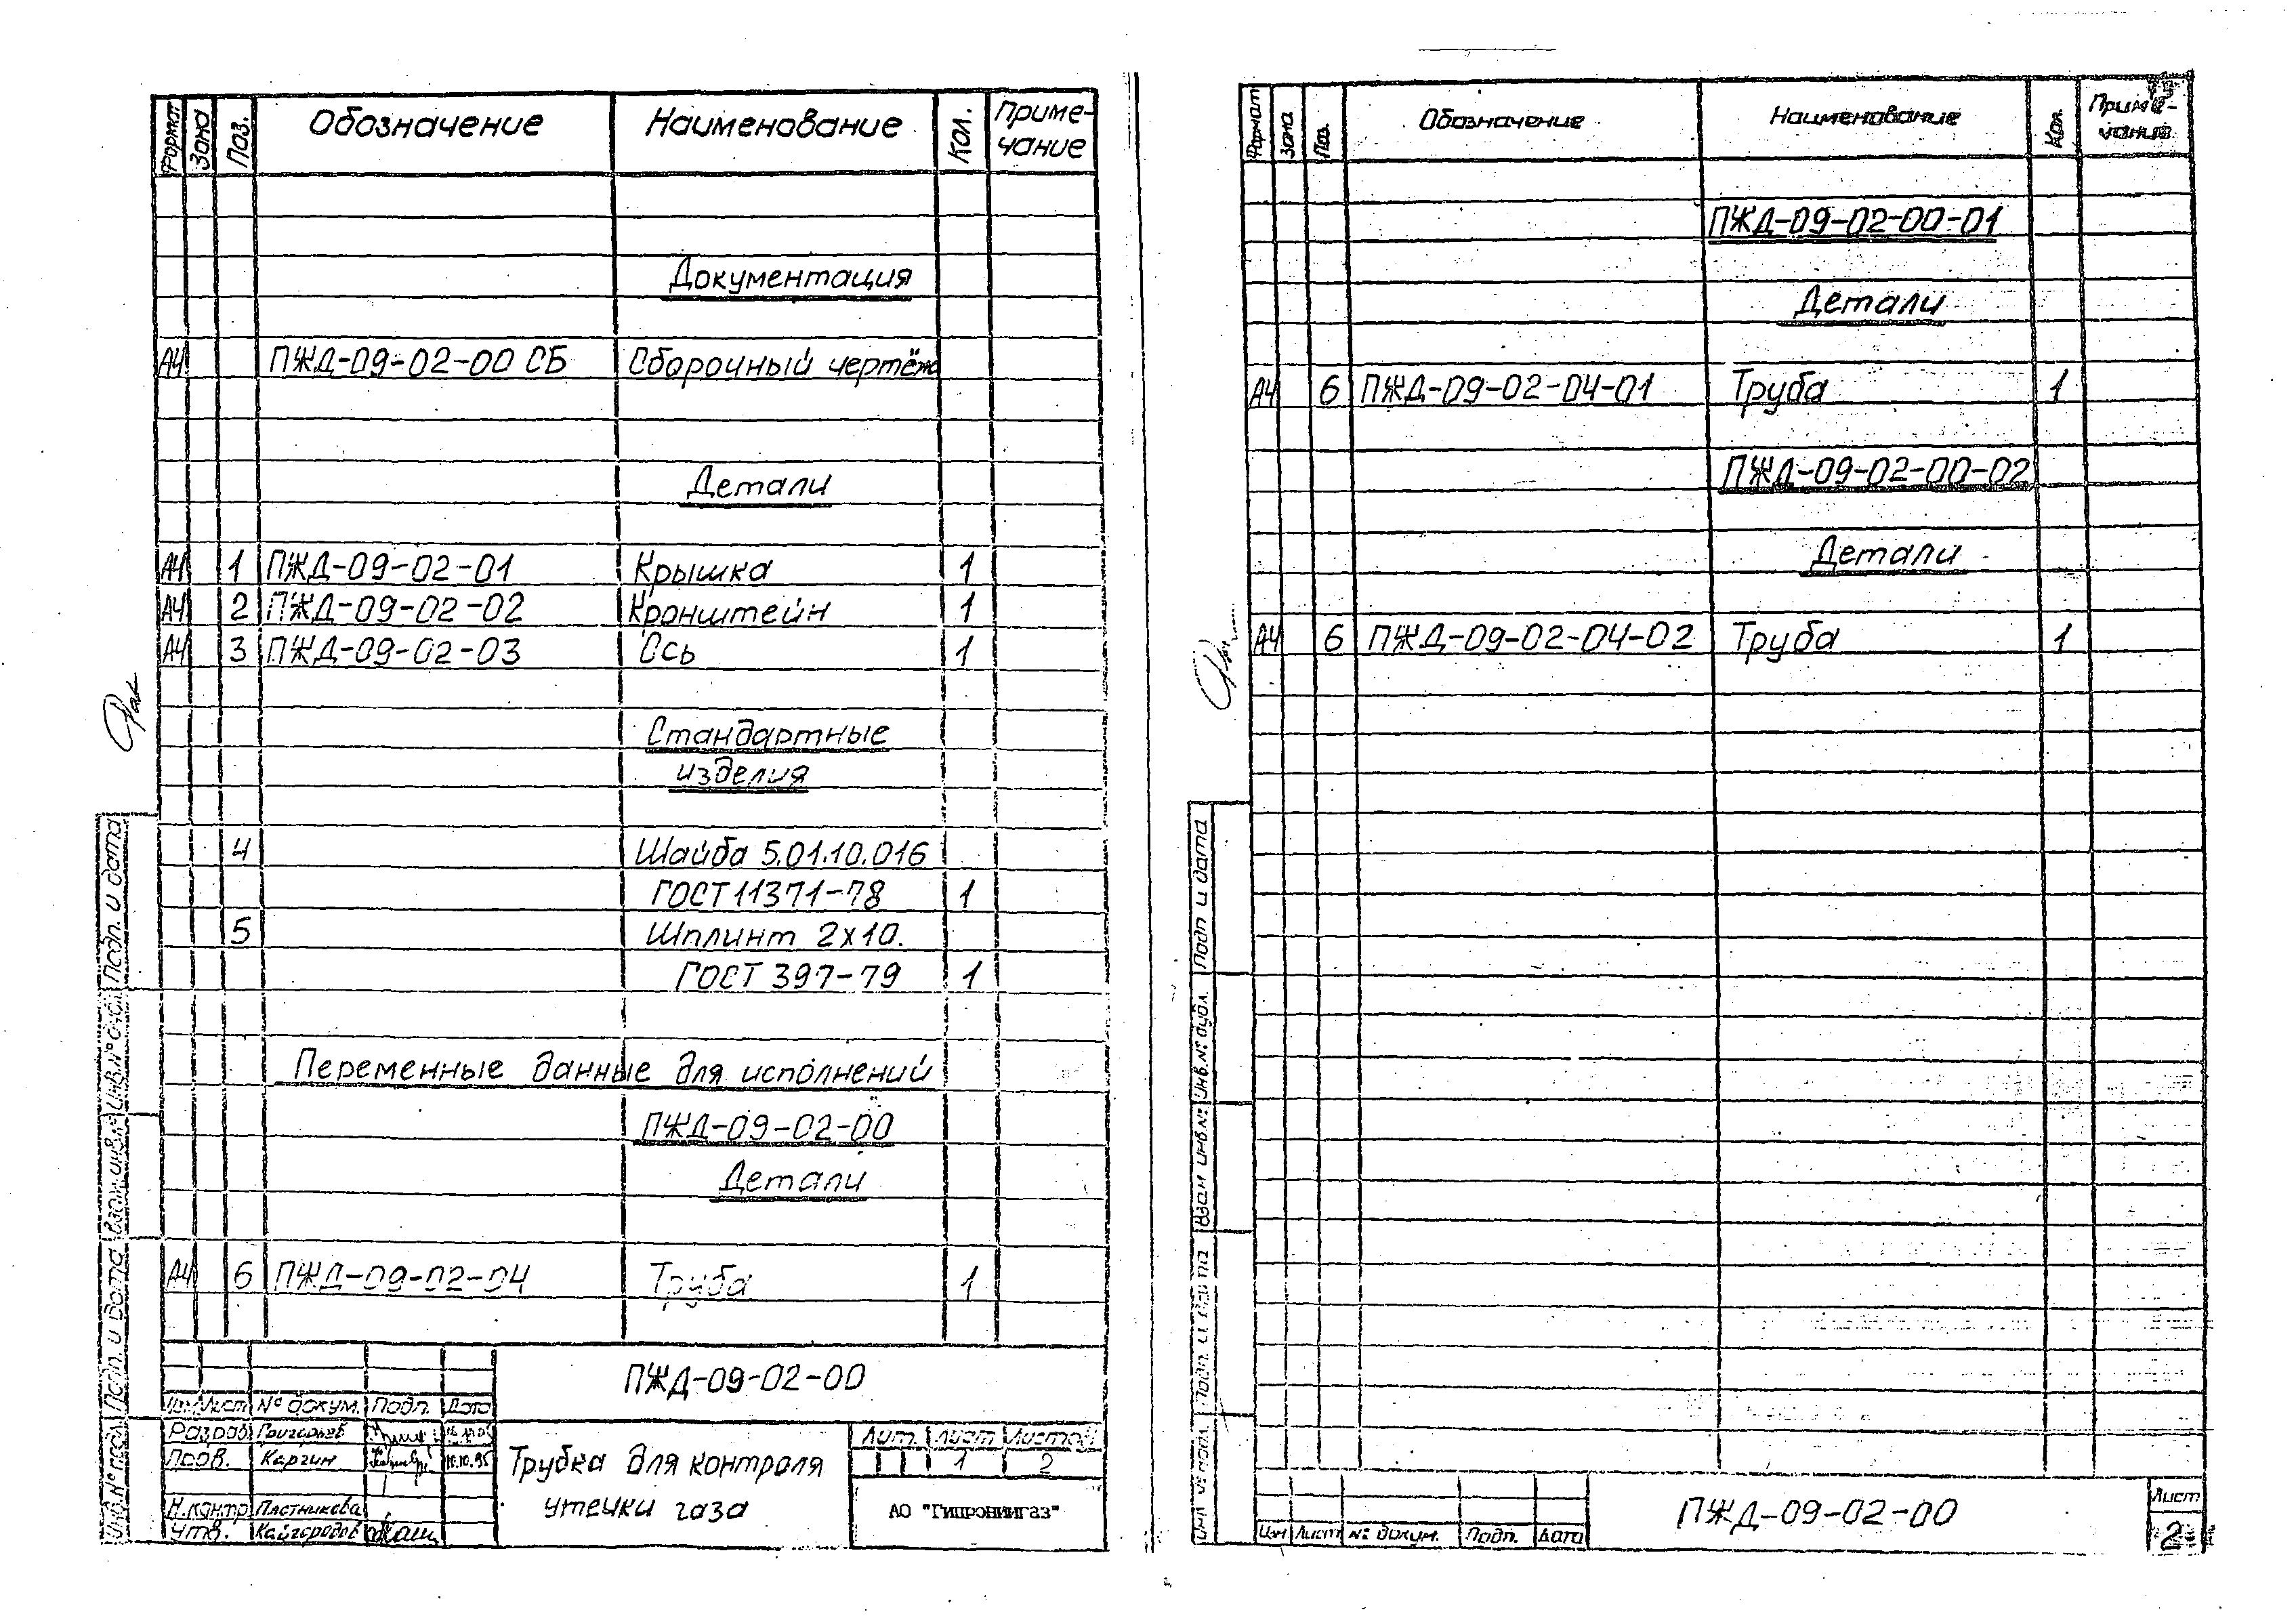 Формат Зона Поз. Обозначение Наименование Кол. Приме-
чание
Документация
А4 ПЖД-09-02-00 СБ Сборочный чертёж
Детали
А4 1 ПЖД-09-02-01 Крышка 1
А4 2 ПЖД-09-02-02 Кронштейн 1
А4 3 ПЖД-09-02-03 Ось 1
Стандартные
изделия
4 Шайба 5.01.10.016
ГОСТ 11371-78 1
5 Шплинт 2х10.
ГОСТ 397-79 1
Переменные данные для исполнений
ПЖД-09-02-00
Детали
А4 6 ПЖД-09-02-04 Труба 1
Подп. и дата
Инв.№
Взам.инв.№
Подп. и дата
Инв.№ подл.
ПЖД-09-02-00
Лист № докум. Подп. Дата
Разраб. Григорьев
Пров. Каргин 10.10.95
Н.контр. Пластникова
Утв. Кайгородов
Трубка для контроля
утечки газа
Лит. Лист Листов
1 2
АО "Гипрониигаз"
Формат Зона Поз. Обозначение Наименование Кол. Приме-
чание
ПЖД-09-02-00-01
Детали
А4 6 ПЖД-09-02-04-01 Труба 1
ПЖД-09-02-00-02
Детали
А4 6 ПЖД-09-02-04-02 Труба 1
Подп и дата
Инв.№ дубл.
Взам инв №
Подп. и дата
Инв № подл.
Изм Лист № докум. Подп. Дата
ПЖД-09-02-00
Лист
2